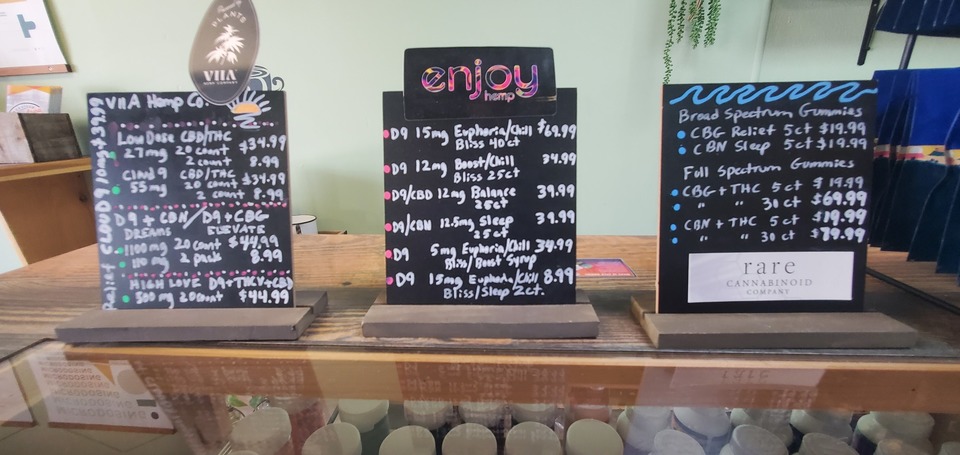 PLANTS
VIIA
HEMP COMPANY
VIIA Hemp Co.
Low Dose CBD/THC
20 count $34.99
2 count 8.99
Cloud 9 CBD/THC
55mg 20 count $34.99
2 count 8.99
D9 + CBN/D9+CBG
DREAMS ELEVATE
1100mg 20 count $44.99
110 mg 2 packs 8.99
HIGH LOVE
500 mg 20 count $44.99
enjoy
hemp
D9 15mg Euphoria/Chill $69.99
Bliss 40ct
D9 12mg Boost/Chill 34.99
Bliss 25ct
D9/CBD 12mg Balance 39.99
D9/CBN 12.5mg Sleep 39.99
25ct
D9 5mg Euphoria/Chill 34.99
Bliss/Boost Syrup
D9 15mg Euphoria/Chill 8.99
Bliss/Sleep 2ct.
Broad Spectrum Gummies
CBG Relief 5ct $19.99
CBN Sleep 5ct $19.99
Full Spectrum Gummies
CBG + THC 5ct $19.99
" " 30ct $69.99
CBN + THC 5ct $19.99
" " 30ct $79.99
rare
CANNABINOID
COMPANY
MICRODOSING